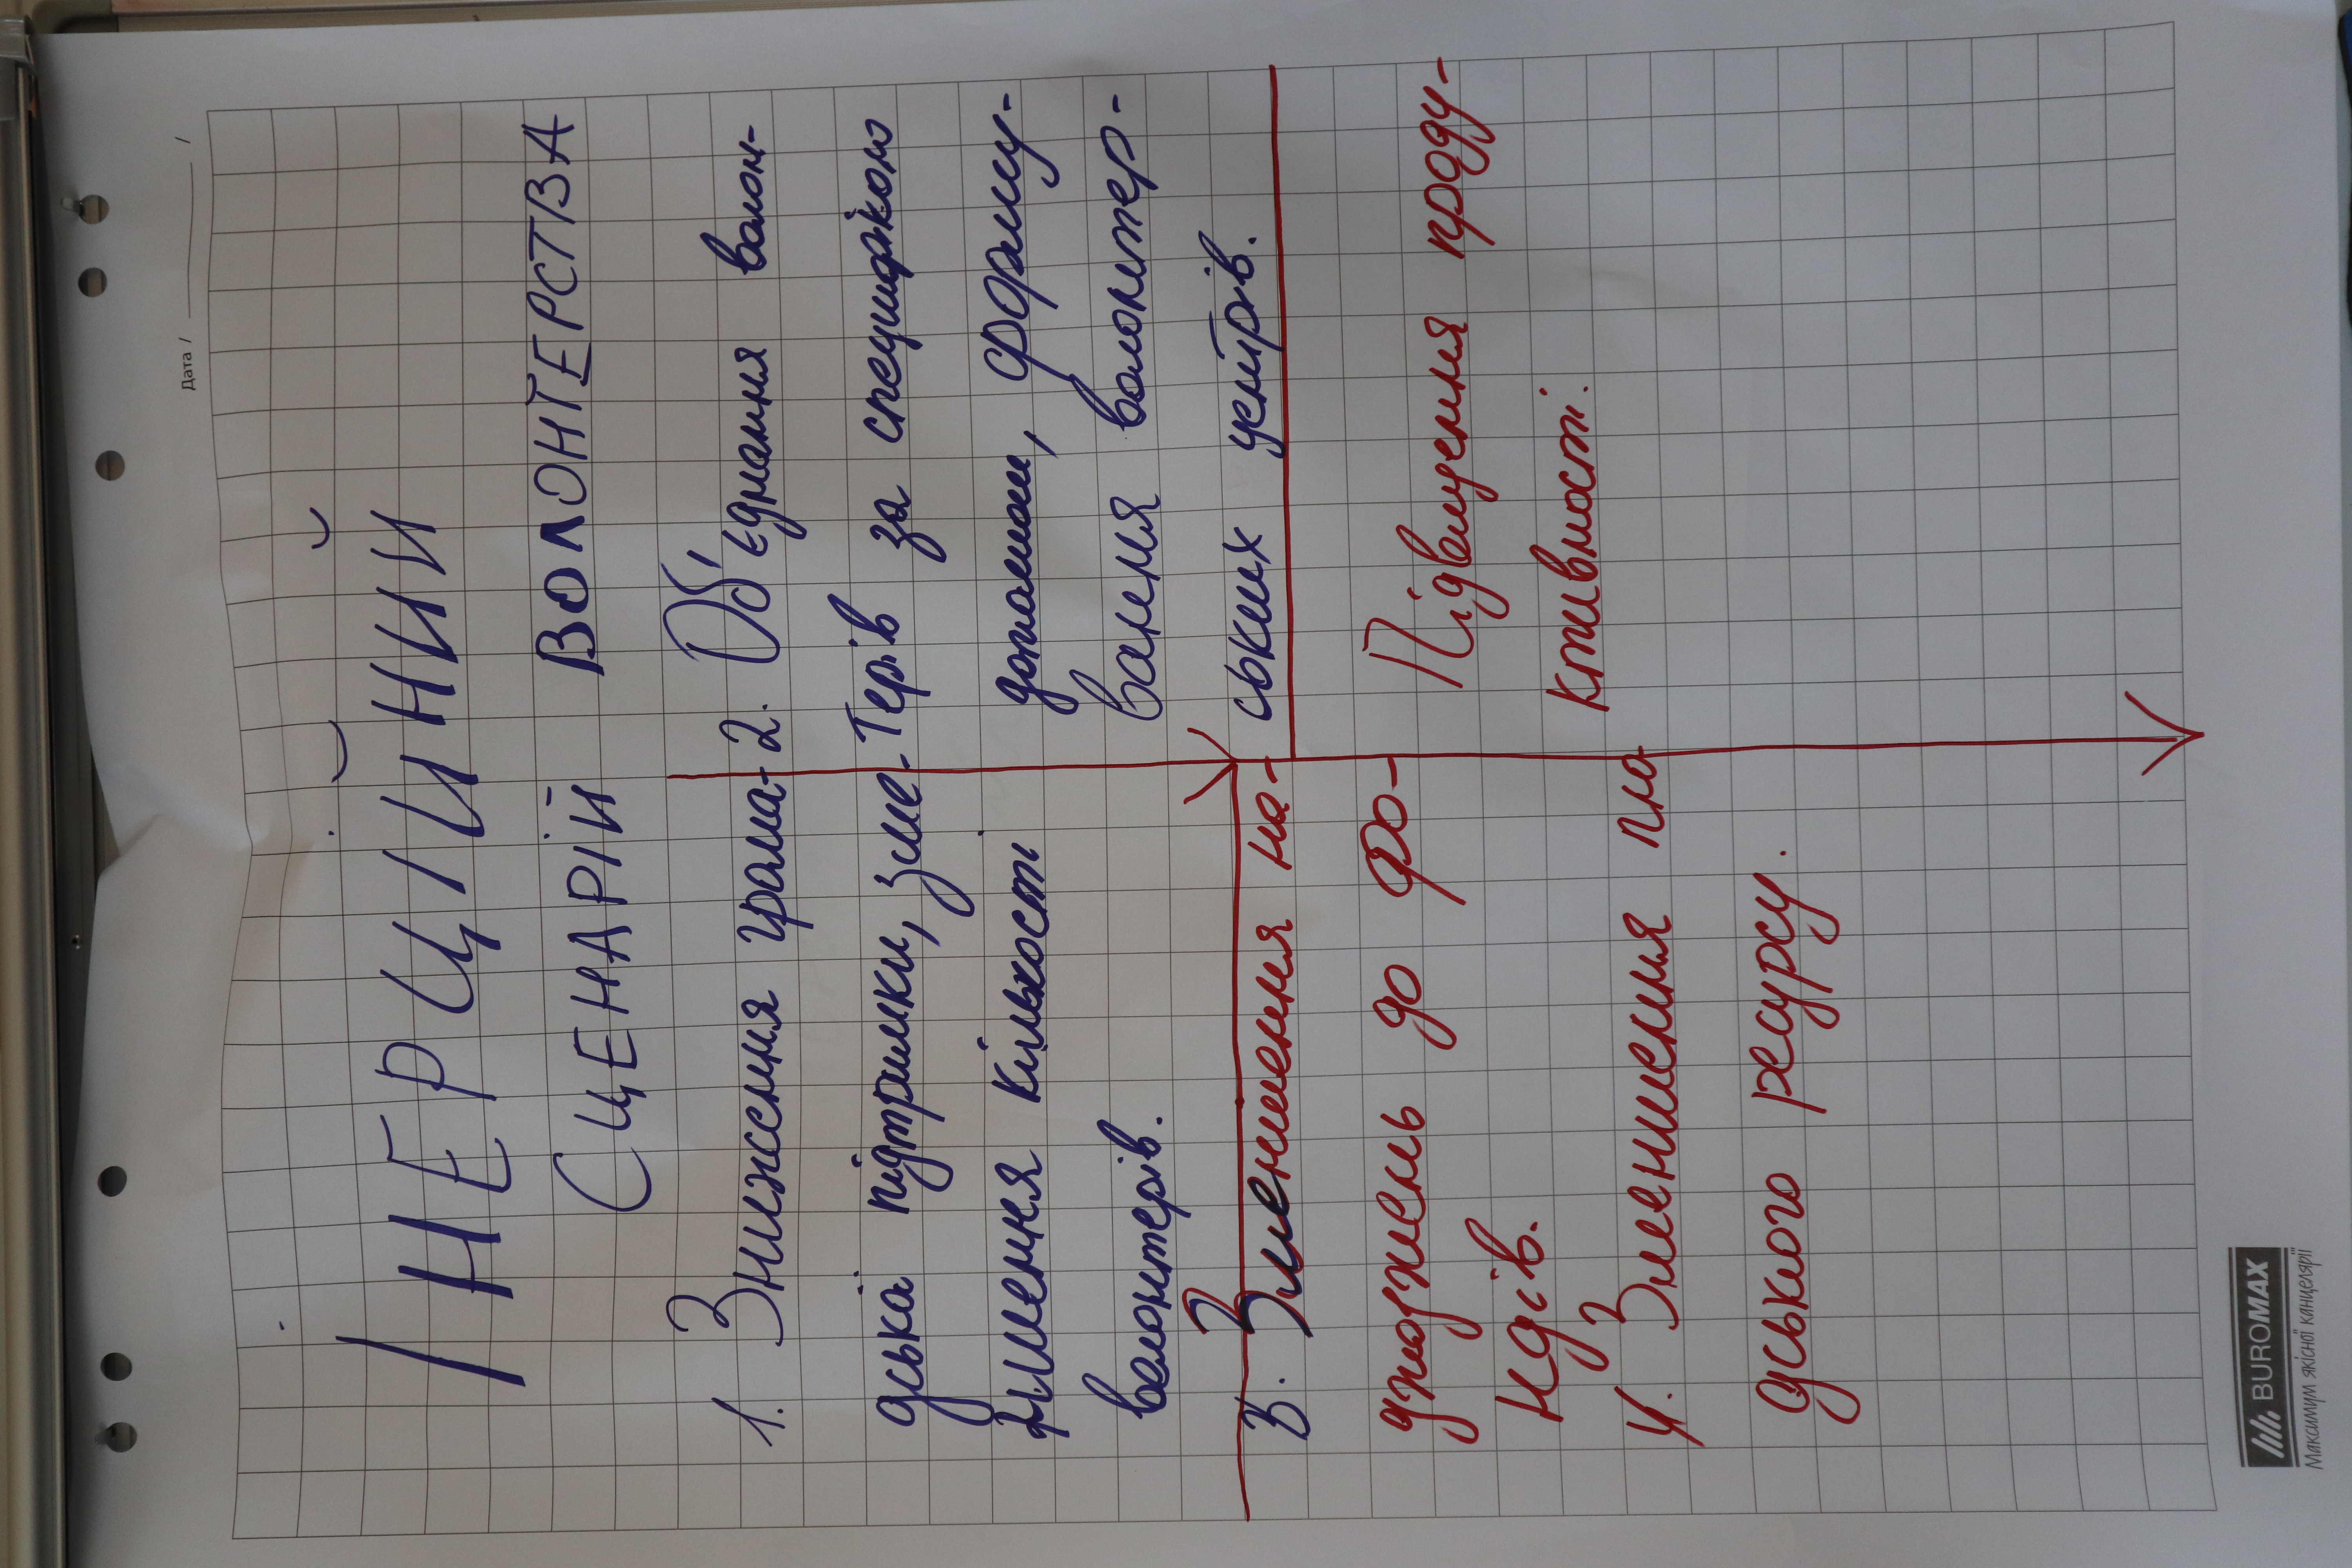 Дата / /
ІНЕРЦІЙНИЙ
СЦЕНАРІЙ ВОЛОНТЕРСТВА
1. Зниження грома-
дської підтримки, зме-
ншення кількості
волонтерів.
2. Об'єднання волон-
терів за специфікою
допомоги, форму-
вання волонтер-
ських центрів.
3. Зменшення на-
дходжень до фо-
ндів.
4. Зменшення лю
дського ресурсу.
Підвищення проду-
ктивності.
BUROMAX
Максимум якісної канцелярії